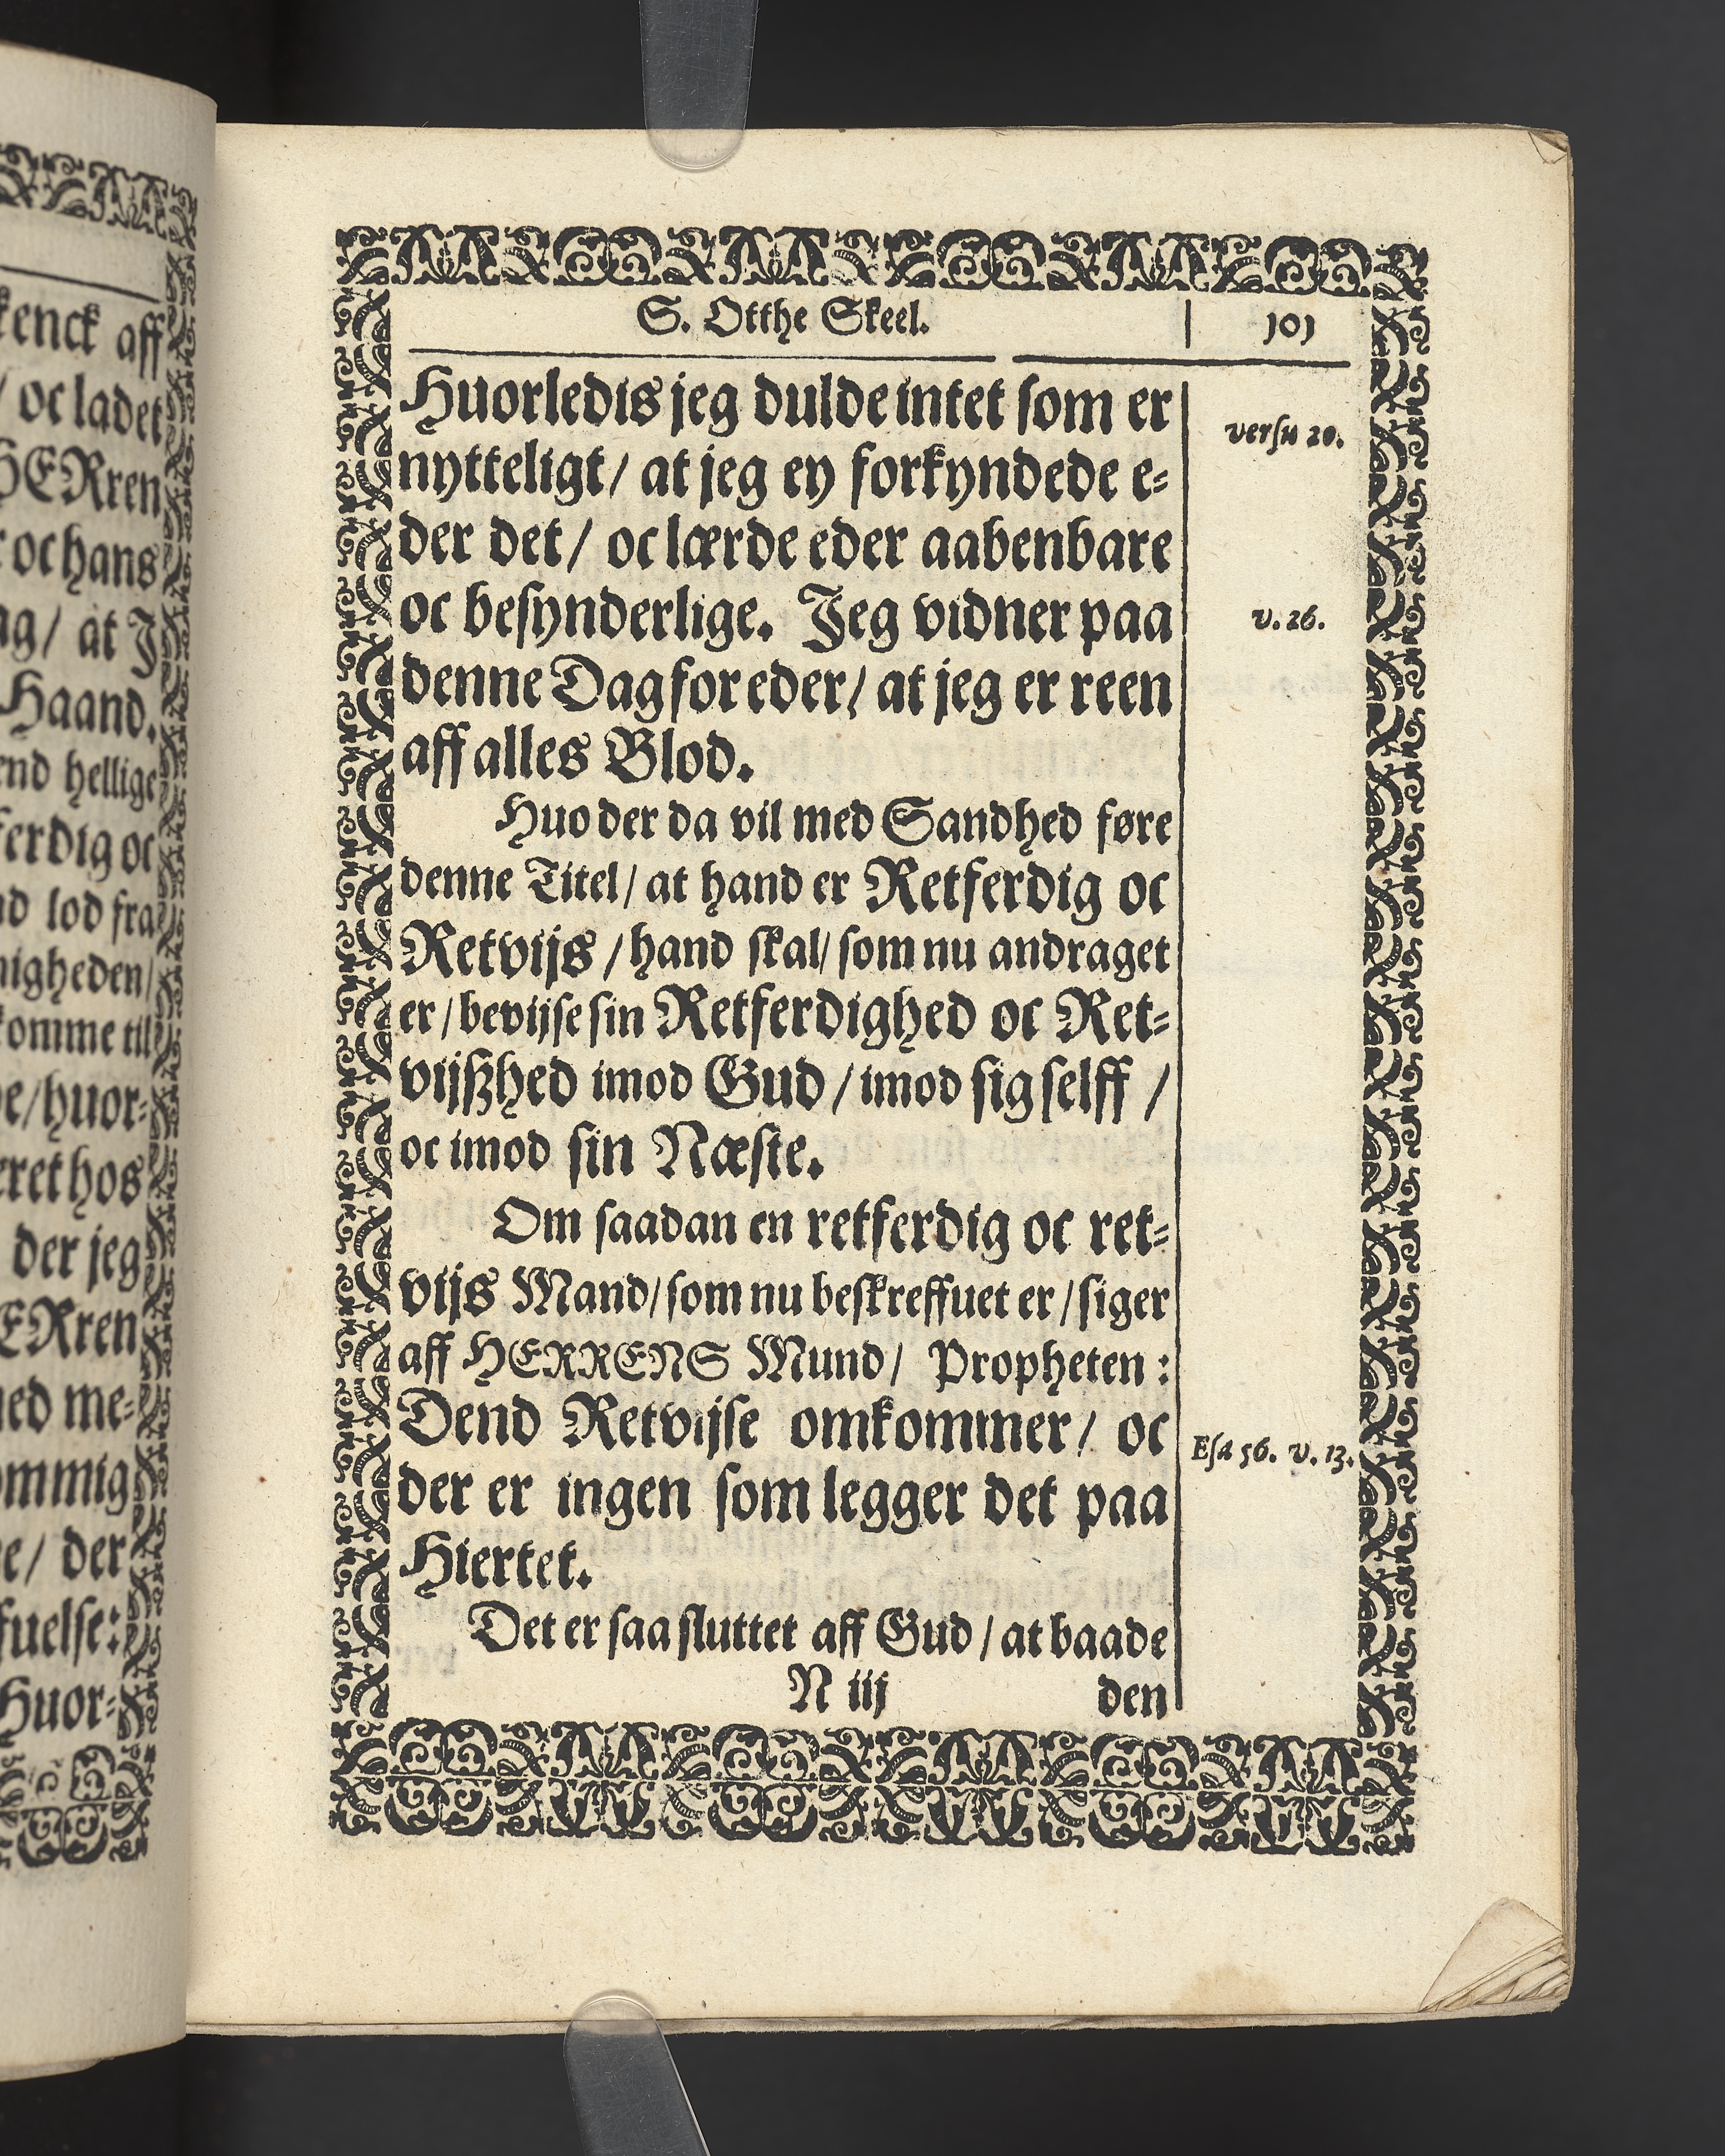 kenck aff
/ oc ladet
HERren
r oc hans
ag/ at J
Haand.
end hellige
ferdig oc
nd lod fra
nigheden/
komme til
de/huor⸗
eret hos
der jeg
ERren
med me⸗
ommig
e/ der
fuelse:
Huor⸗
S. Otthe Skeel. 101
Huorledis jeg dulde intet som er
versu 20.
nytteligt/ at jeg ey forkyndede e⸗
der det/ oc lærde eder aabenbare
oc besynderlige. Jeg vidner paa
v. 26.
denne Dag for eder/ at jeg er reen
aff alles Blod.
Huo der da vil med Sandhed føre
denne Titel/ at hand er Retferdig oc
Retvijs /hand skal/ som nu andraget
er/bevijse sin Retferdighed oc Ret⸗
vijßhed imod Gud/imod sig selff /
oc imod sin Næste.
Om saadan en retferdig oc ret⸗
vijs Mand/som nu beskreffuet er/siger
aff HERRENS Mund/ Propheten:
Dend Retvijse omkommer/ oc
Esa 56. v. 13.
der er ingen som legger det paa
Hiertet.
Det er saa sluttet aff Gud/at baade
N iij den